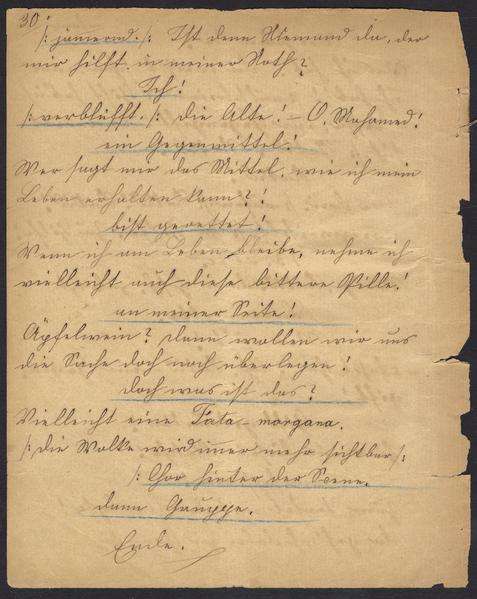 30
/: jamernd. :/ Ist denn Niemand da, der
mir hilft in meiner Noth?
Ich!
/: verblüfft. :/ die Alte! – O, Mahomed!
ein Gegenmittel!
Wer sagt mir das Mittel, wie ich mein
Leben erhalten kann?!
bist gerettet!
Wenn ich am Leben bleibe, nehme ich
vielleicht auch diese bittere Pille!
an meiner Seite!
Äpfelwein? dann wollen wir uns
die Sache doch noch überlegen!
doch was ist das?
Vielleicht eine Fata-morgana.
/: die Wolke wird immer mehr sichtbar :/
/: Chor hinter der Scene.
dann Gruppe.
Ende.